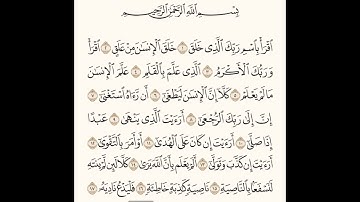 بِسْمِ اللَّهِ الرَّحْمَٰنِ الرَّحِيمِ
اقْرَأْ بِاسْمِ رَبِّكَ الَّذِي خَلَقَ ١ خَلَقَ الْإِنسَانَ مِنْ عَلَقٍ ٢ اقْرَأْ
وَرَبُّكَ الْأَكْرَمُ ٣ الَّذِي عَلَّمَ بِالْقَلَمِ ٤ عَلَّمَ الْإِنسَانَ
مَا لَمْ يَعْلَمْ ٥ كَلَّا إِنَّ الْإِنسَانَ لَيَطْغَىٰ ٦ أَن رَّآهُ اسْتَغْنَىٰ ٧
إِنَّ إِلَىٰ رَبِّكَ الرُّجْعَىٰ ٨ أَرَأَيْتَ الَّذِي يَنْهَىٰ ٩ عَبْدًا
إِذَا صَلَّىٰ ١٠ أَرَأَيْتَ إِن كَانَ عَلَى الْهُدَىٰ ١١ أَوْ أَمَرَ بِالتَّقْوَىٰ ١٢
أَرَأَيْتَ إِن كَذَّبَ وَتَوَلَّىٰ ١٣ أَلَمْ يَعْلَم بِأَنَّ اللَّهَ يَرَىٰ ١٤ كَلَّا لَئِن لَّمْ يَنتَهِ
لَنَسْفَعًا بِالنَّاصِيَةِ ١٥ نَاصِيَةٍ كَاذِبَةٍ خَاطِئَةٍ ١٦ فَلْيَدْعُ نَادِيَهُ ١٧